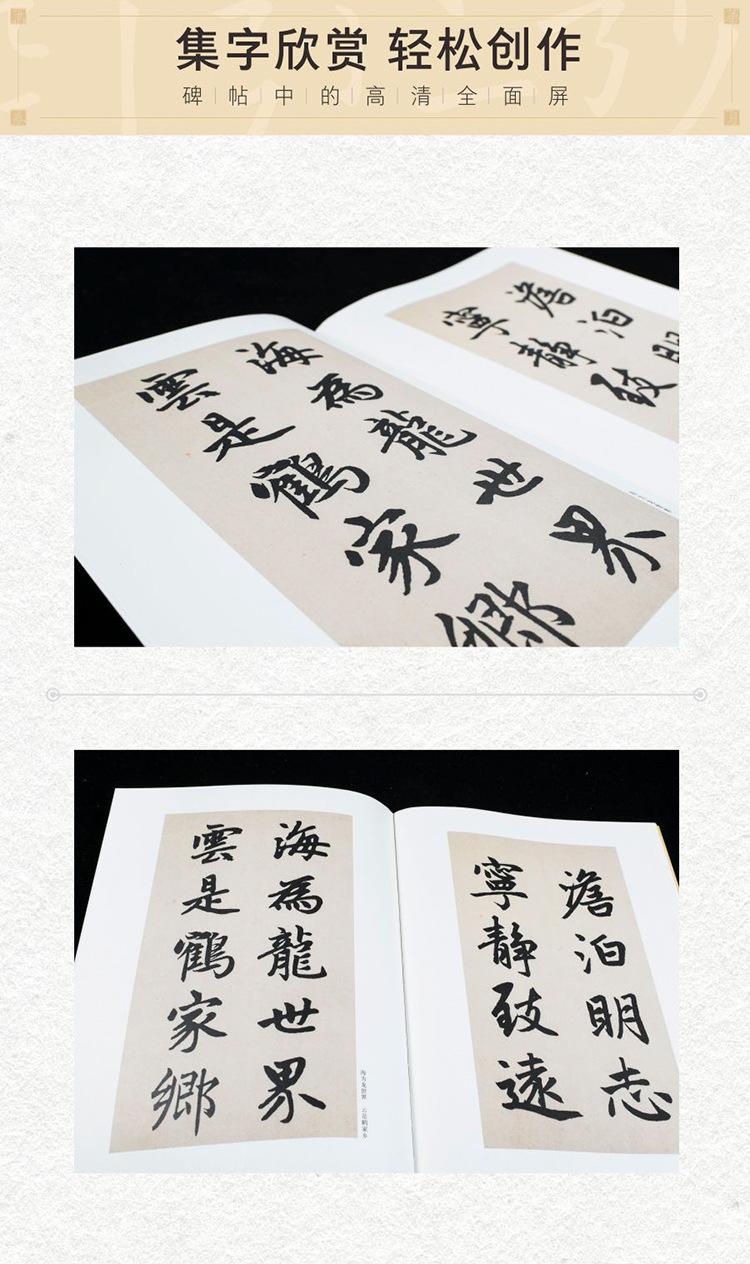 集字欣赏 轻松创作
碑帖中的高清全面屏
海為龍世界
雲是鶴家鄉
澹泊明
寧靜致
海為龍世界
雲是鶴家鄉
海为龙世界 云是鹤家乡
澹泊明志
寧靜致遠